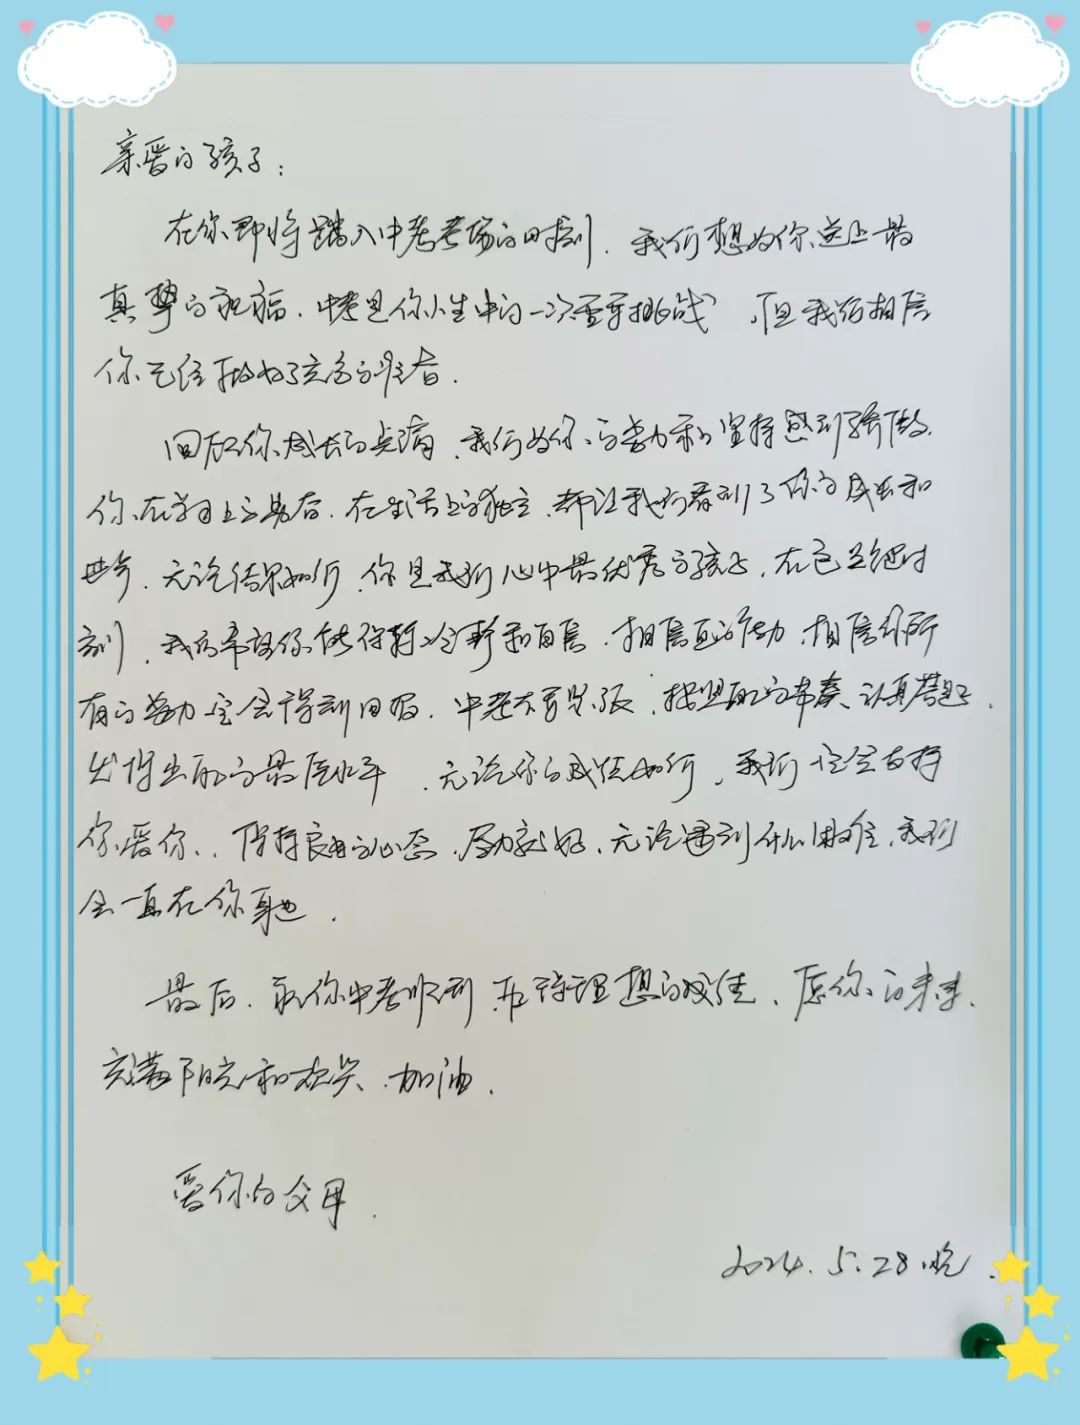 亲爱的孩子：
在你即将踏入中考考场的时刻，我们想为你送上最
真挚的祝福，中考是你人生中的一次重要挑战，但我们相信
你已经做好了充分的准备．
回顾你成长的点滴，我们为你的努力和坚持感到骄傲，
你在学习上的勤奋，在生活上的独立，都让我们看到了你的成长和
进步，无论结果如何，你是我们心中最优秀的孩子，在这关键时
刻，我们希望你能保持冷静和自信，相信自己的能力，相信你所
有的努力定会得到回报，中考不要紧张，按照自己的节奏，认真答题，
发挥出自己的最佳水平，无论你的成绩如何，我们一定会支持
你爱你，保持良好的心态，尽力就好，无论遇到什么困难，我们
会一直在你身边．
最后，祝你中考顺利，取得理想的成绩，愿你的未来，
充满阳光和欢笑，加油．
爱你的父母．
2024.5.28晚．